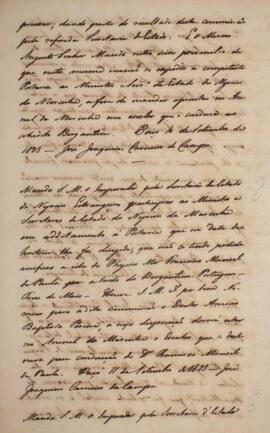 procurar, dando parte do resultado desta commissão
pela referida Secretaria de Estado. E o Mesmo
Augusto Senhor Manda outro sim participal-o de
que nesta mesma occasião se expedio a competente
Portaria ao Ministro Secr.º de Estado dos Negocios
da Marinha, a fim de mandar apromptar no Arse-
nal da Marinha um escaler que o conduza ao
sobredito Bergantim. Paço de Setembro de
1823 — José Joaquim Carneiro de Campos.
Manda S. M. o Imperador pela Secretaria de Estado
dos Negocios Estrangeiros participar ao Ministro e
Secretario de Estado dos Negocios da Marinha
em additamento á Portaria que na data de
hontem lhe foi dirigida, que não tendo podido
verificar a ida do Francisco Manoel
de Paula que a bordo do Bergantim Portuguez
Treze de Maio — Houve S. M. I. por bem No-
mear para a dita commissão o Doutor
Baptista Pereira, a cuja disposição deverá estar
no Arsenal da Marinha o Escaler que se desti-
nava para conducção do Dr. Francisco Manoel
de Paula. Paço 11 de Setembro de 1823 — José
Joaquim Carneiro de Campos.
Manda S. M. o Imperador pela Secretaria d'Estado